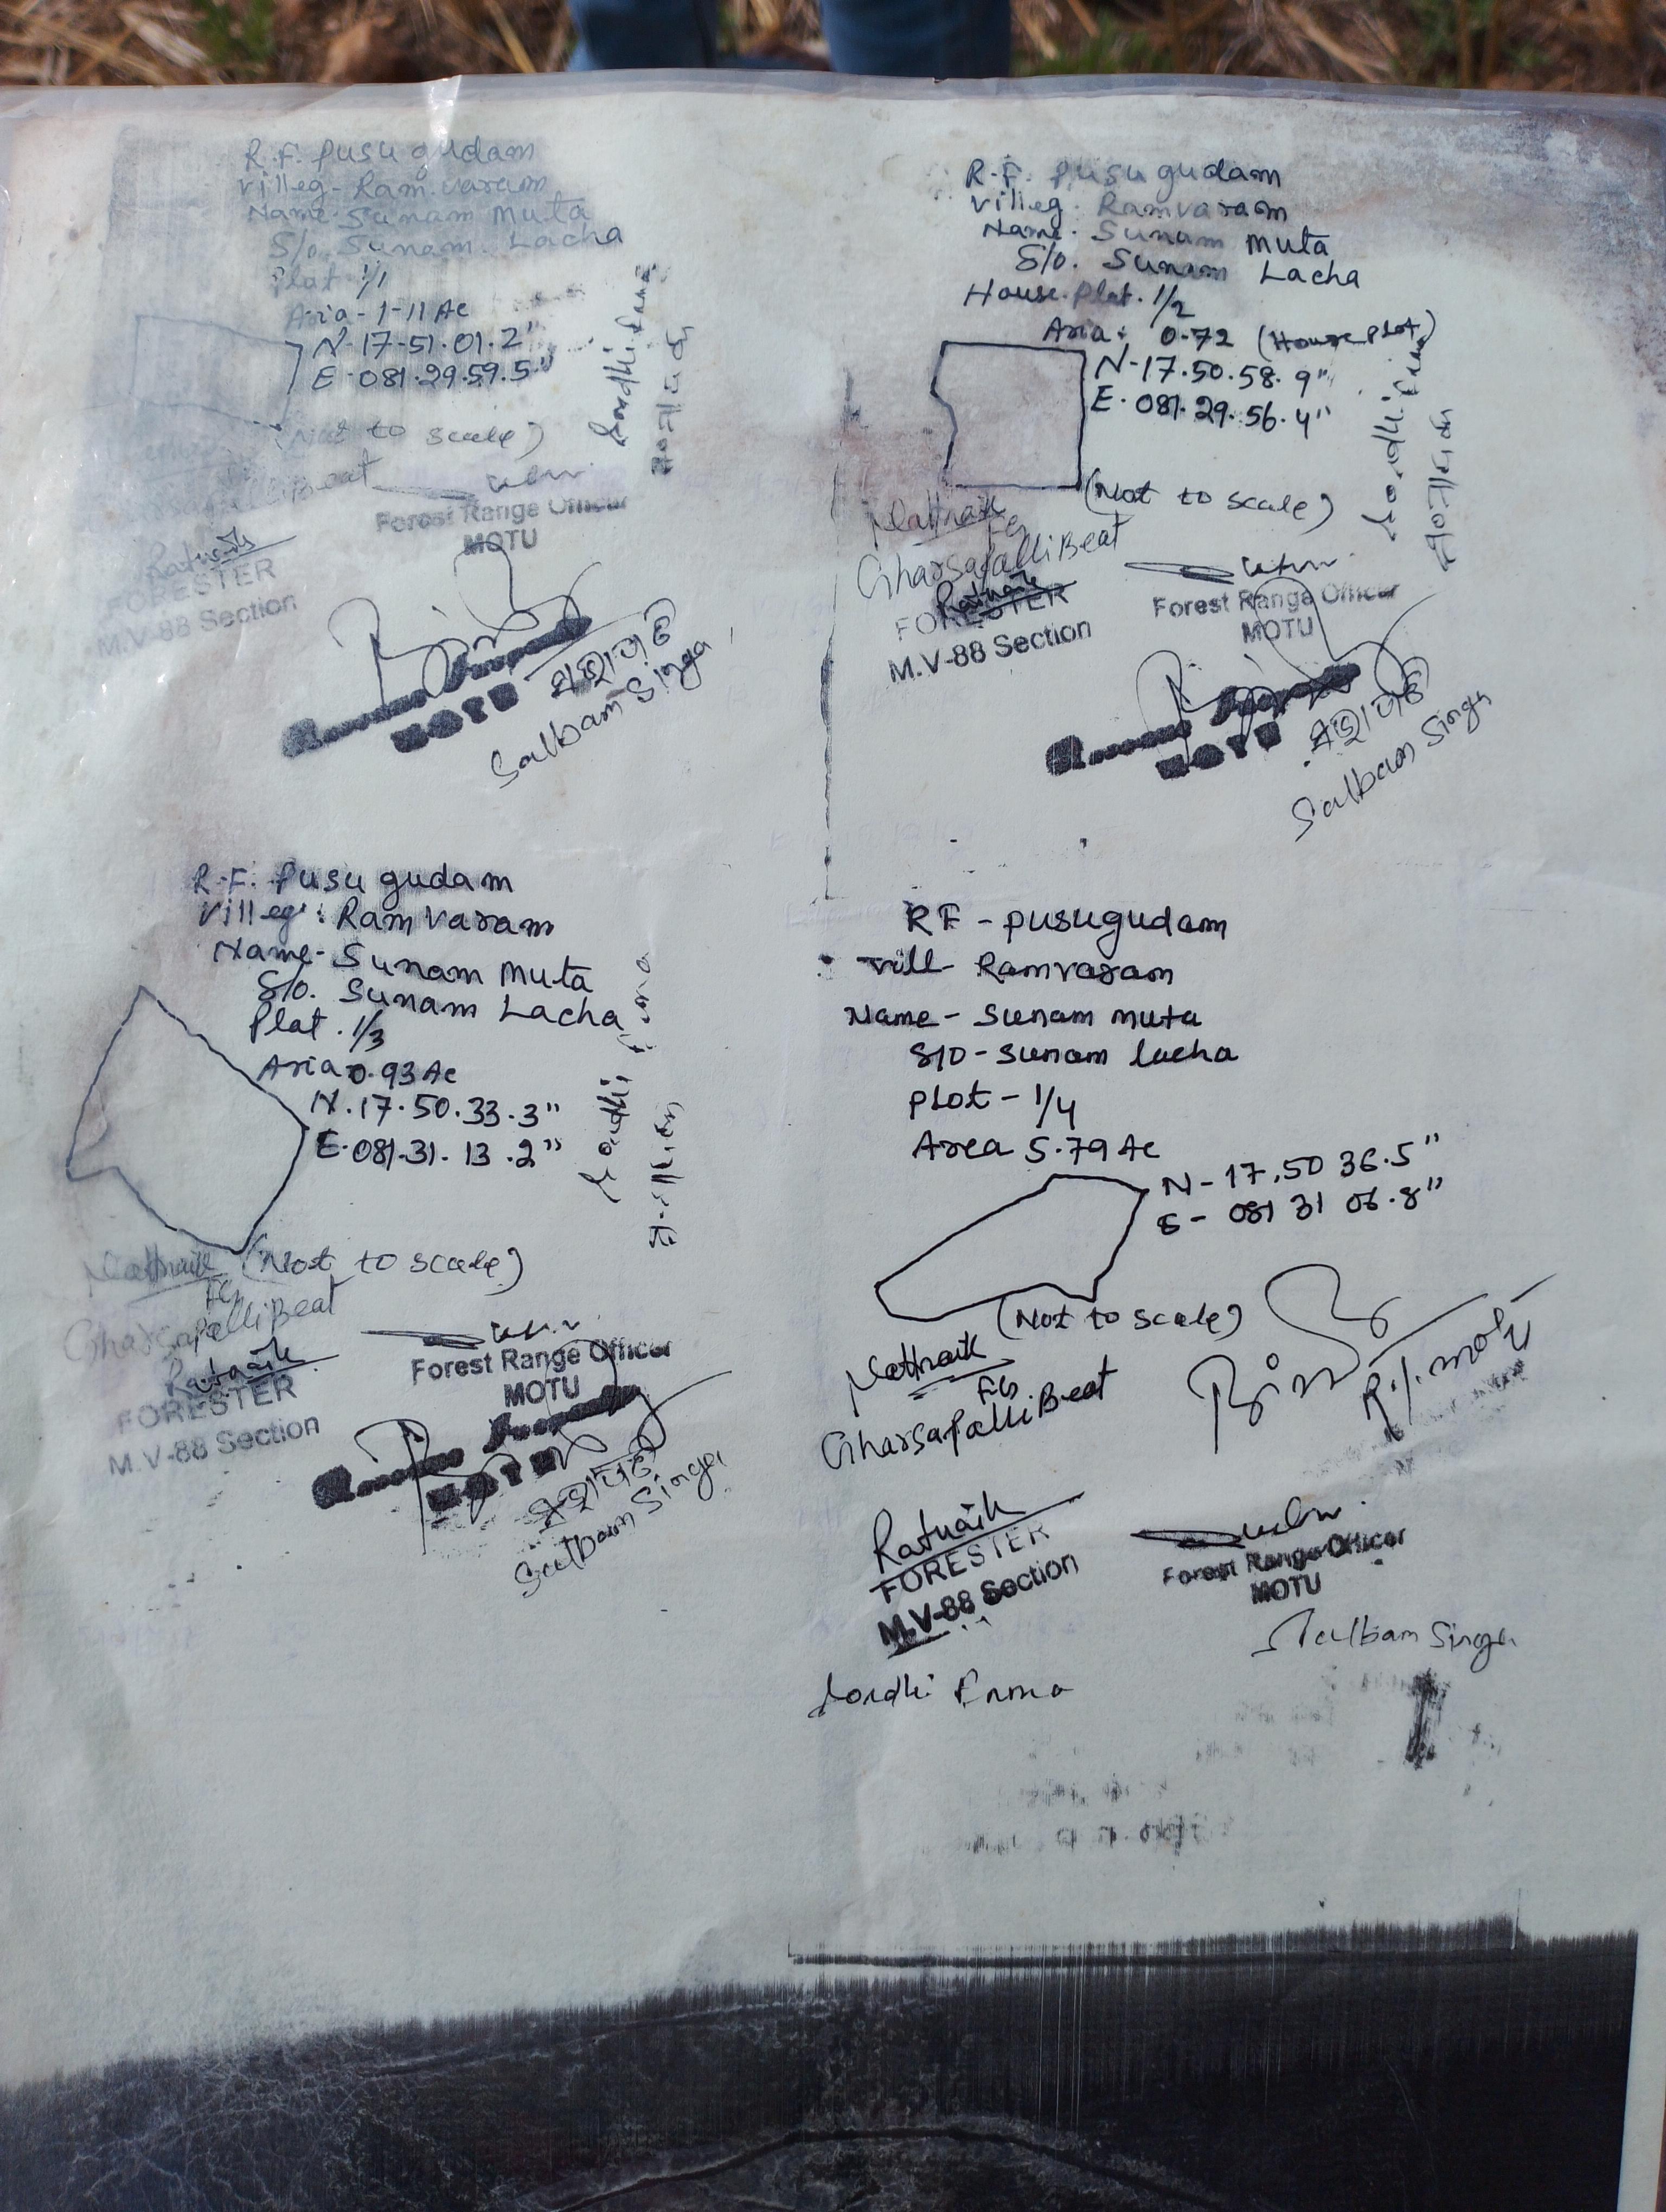 R.F. Pusugudam
Villeg- Ram.varam
Name- Sunam Muta
S/o. Sunam. Lacha
Plat 1/1
Aria- 1-11 Ac
N-17-51.01.2"
E-081.29.59.5"
(Not to scale)
Beat
Forest Range Officer
MOTU
Ratnaik
FORESTER
M.V-88 Section
MOTU
Salbam Singa
R.F. Pusugudam
Villeg. Ramvaram
Name. Sunam Muta
S/o. Sunam Lacha
House.Plat. 1/2
Aria: 0.72 (House Plot)
N-17.50.58.9"
E.081.29.56.4"
(Not to scale)
GharsapalliBeat
Ratnaik
FORESTER
M.V-88 Section
Forest Range Officer
MOTU
MOTU
Salbam Singa
R.F. Pusugudam
Villeg: Ramvaram
Name- Sunam Muta
S/o. Sunam Lacha
Plat. 1/3
Aria 0.93 Ac
N.17.50.33.3"
E.081.31.13.2"
(Not to scale)
GharsapalliBeat
Ratnaik
FORESTER
M.V-88 Section
Forest Range Officer
MOTU
MOTU
Salbam Singa
RF - pusugudam
vill- Ramvaram
Name - Sunam muta
S/O - Sunam lacha
PLot - 1/4
Area 5.79 Ac
N- 17.50 36.5"
E- 081 31 06.8"
(Not to scale)
GharsapalliBeat
Ratnaik
FORESTER
M.V-88 Section
Forest Range Officer
MOTU
Salbam Singa